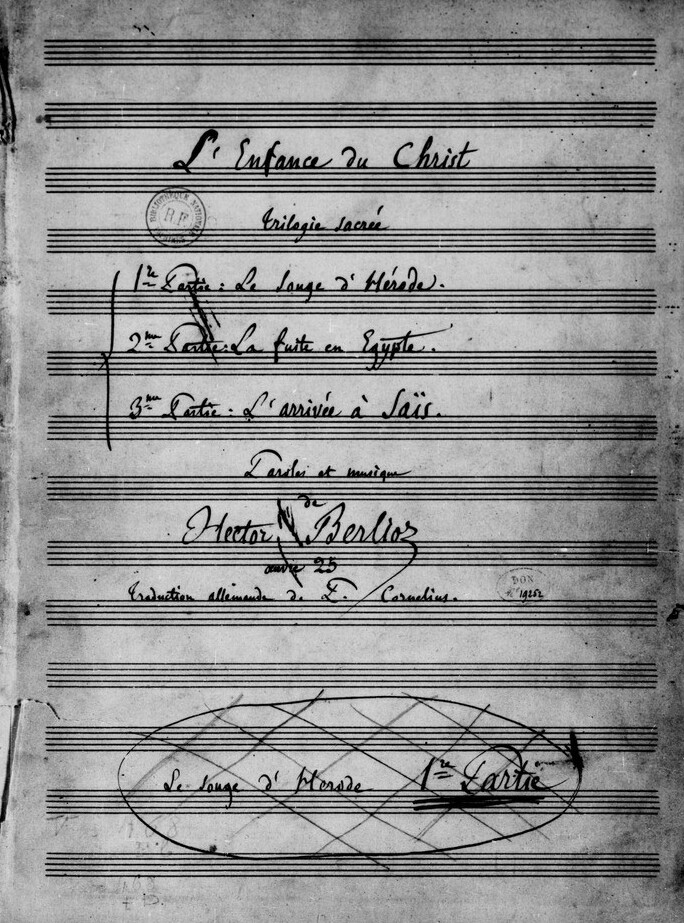 L'Enfance du Christ
Trilogie sacrée
BIBLIOTHÈQUE NATIONALE
R.F.
1re Partie: Le Songe d'Hérode.
2me Partie: La fuite en Egypte.
3me Partie: L'arrivée à Saïs.
Paroles et musique
de
Hector Berlioz
œuvre 25
Traduction allemande de P. Cornelius.
DON
19252
Le Songe d'Hérode 1re Partie